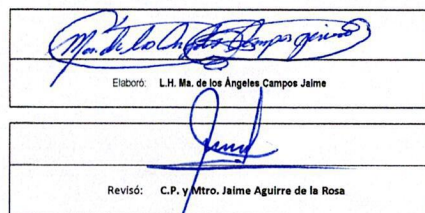 Ma. de los Angeles Campos Jaime
Elaboró: L.H. Ma. de los Ángeles Campos Jaime
Revisó: C.P. y Mtro. Jaime Aguirre de la Rosa